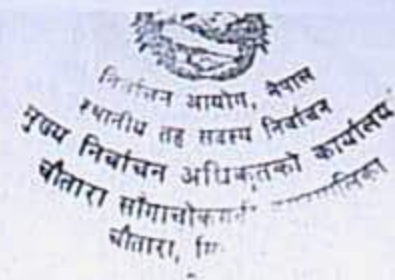 निर्वाचन आयोग, नेपाल
स्थानीय तह सदस्य निर्वाचन
मुख्य निर्वाचन अधिकृतको कार्यालय
चौतारा साँगाचोकगढी
चौतारा,